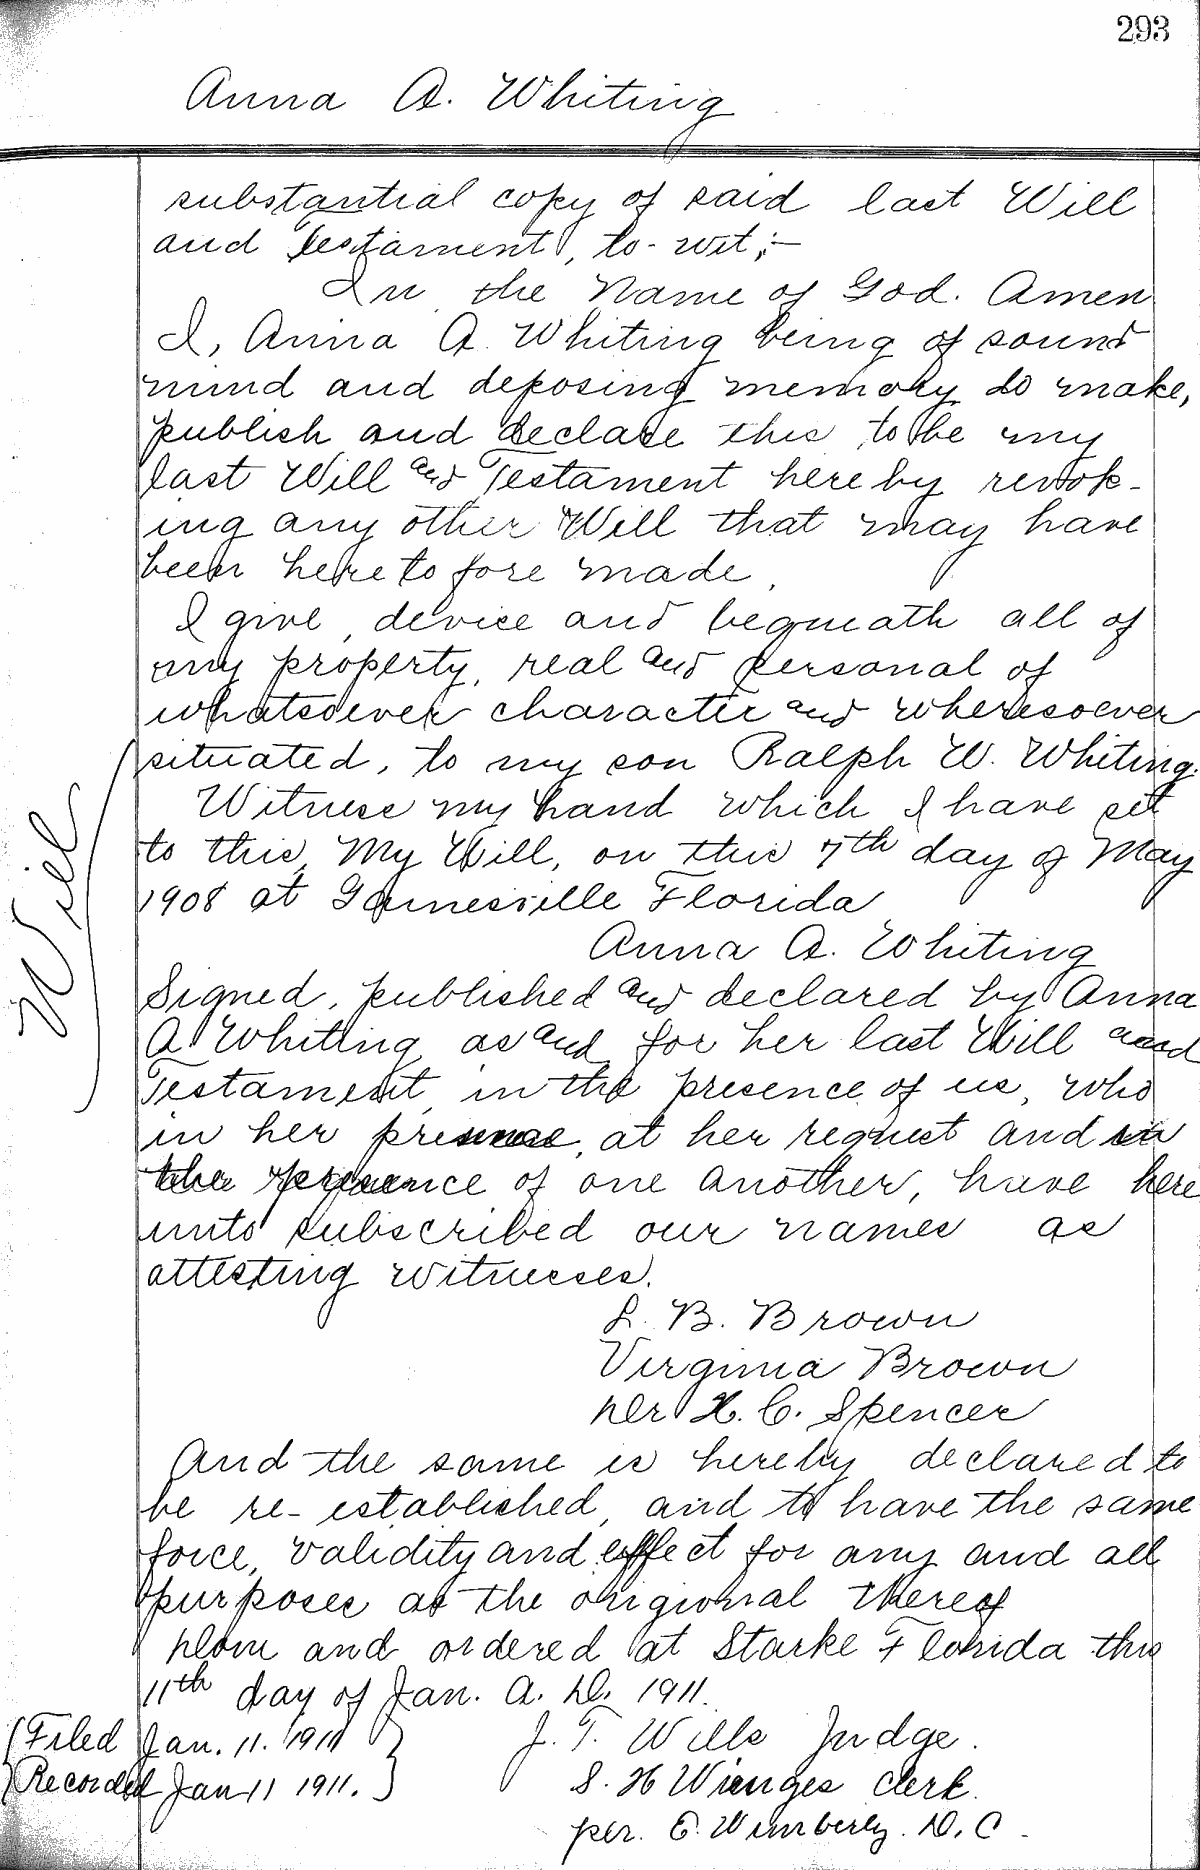 293
Anna A. Whiting
substantial copy of said last Will
and Testament, to-wit;-
In the Name of God. Amen
I, Anna A. Whiting being of sound
mind and deposing memory do make,
publish and declare this to be my
last Will and Testament hereby revok-
ing any other Will that may have
been here to fore made.
I give, device and bequeath all of
my property, real and personal of
whatsoever character and wheresoever
situated, to my son Ralph W. Whiting.
Witness my hand which I have set
to this, My Will, on this 7th day of May
1908 at Gainesville Florida
Will
Anna A. Whiting
Signed, published and declared by Anna
A Whiting as and for her last Will and
Testament in the presence of us, who
in her presence, at her request and in
the presence of one another, have here
unto subscribed our names as
attesting witnesses.
L. B. Brown
Virginia Brown
H. C. Spencer
And the same is hereby declared to
be re-established, and to have the same
force, validity and effect for any and all
purposes as the origional thereof
Done and ordered at Starke Florida this
11th day of Jan. A. D. 1911.
Filed Jan. 11. 1911
J. T. Wills Judge.
Recorded Jan 11 1911.
S. H Wienges clerk.
per. E. Wimberly. D. C.